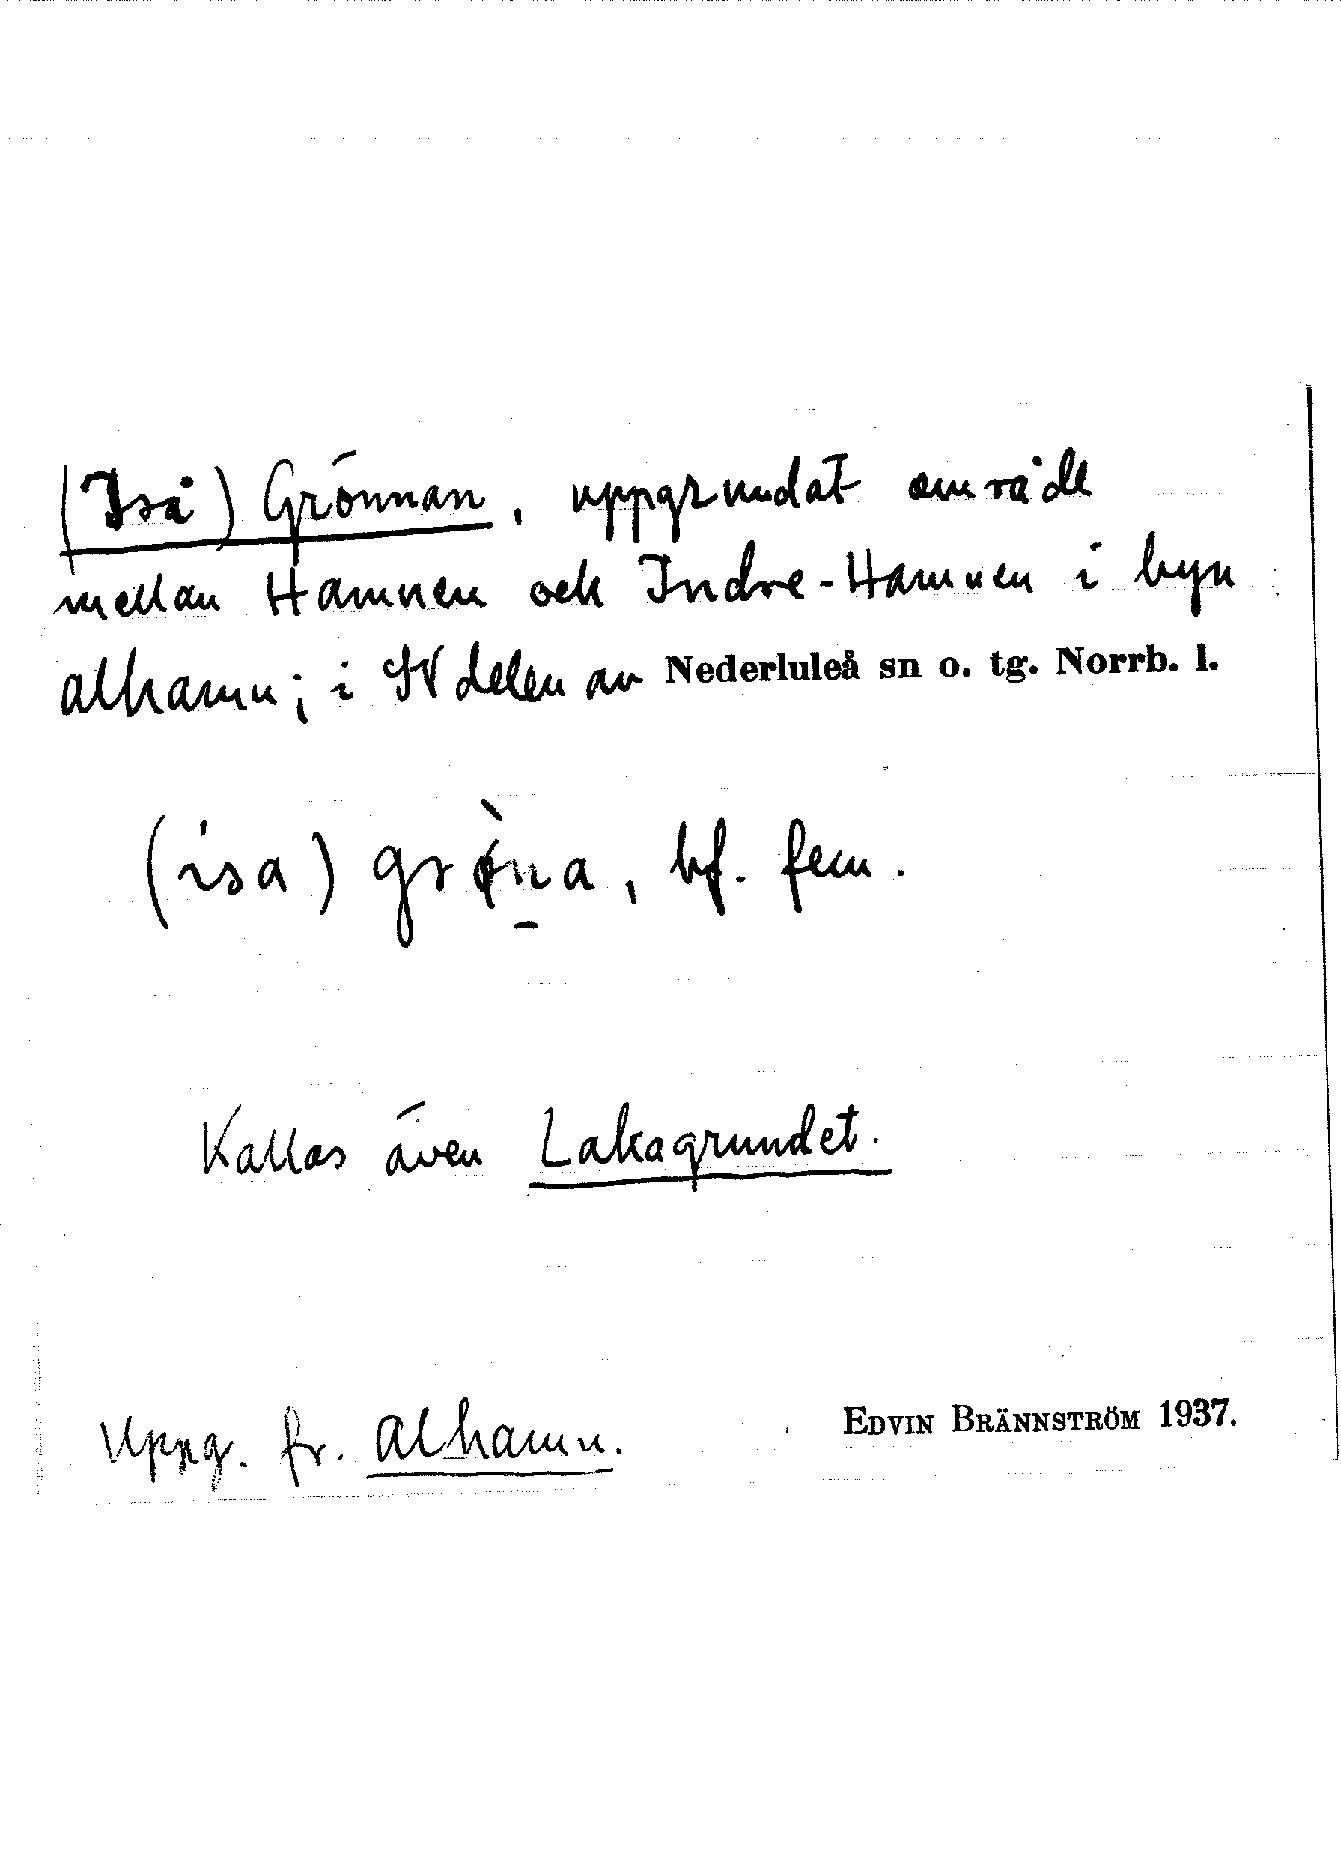 (Iså) Grönnan, uppgrundat område
mellan Hamnen och Indre-Hamnen i byn
Alhamn; i SV delen av Nederluleå sn o. tg. Norrb. l.
(isa) grö̀n̲a, bf. fem.
Kallas även Lakagrundet.
Uppg. fr. Alhamn.
EDVIN BRÄNNSTRÖM 1937.